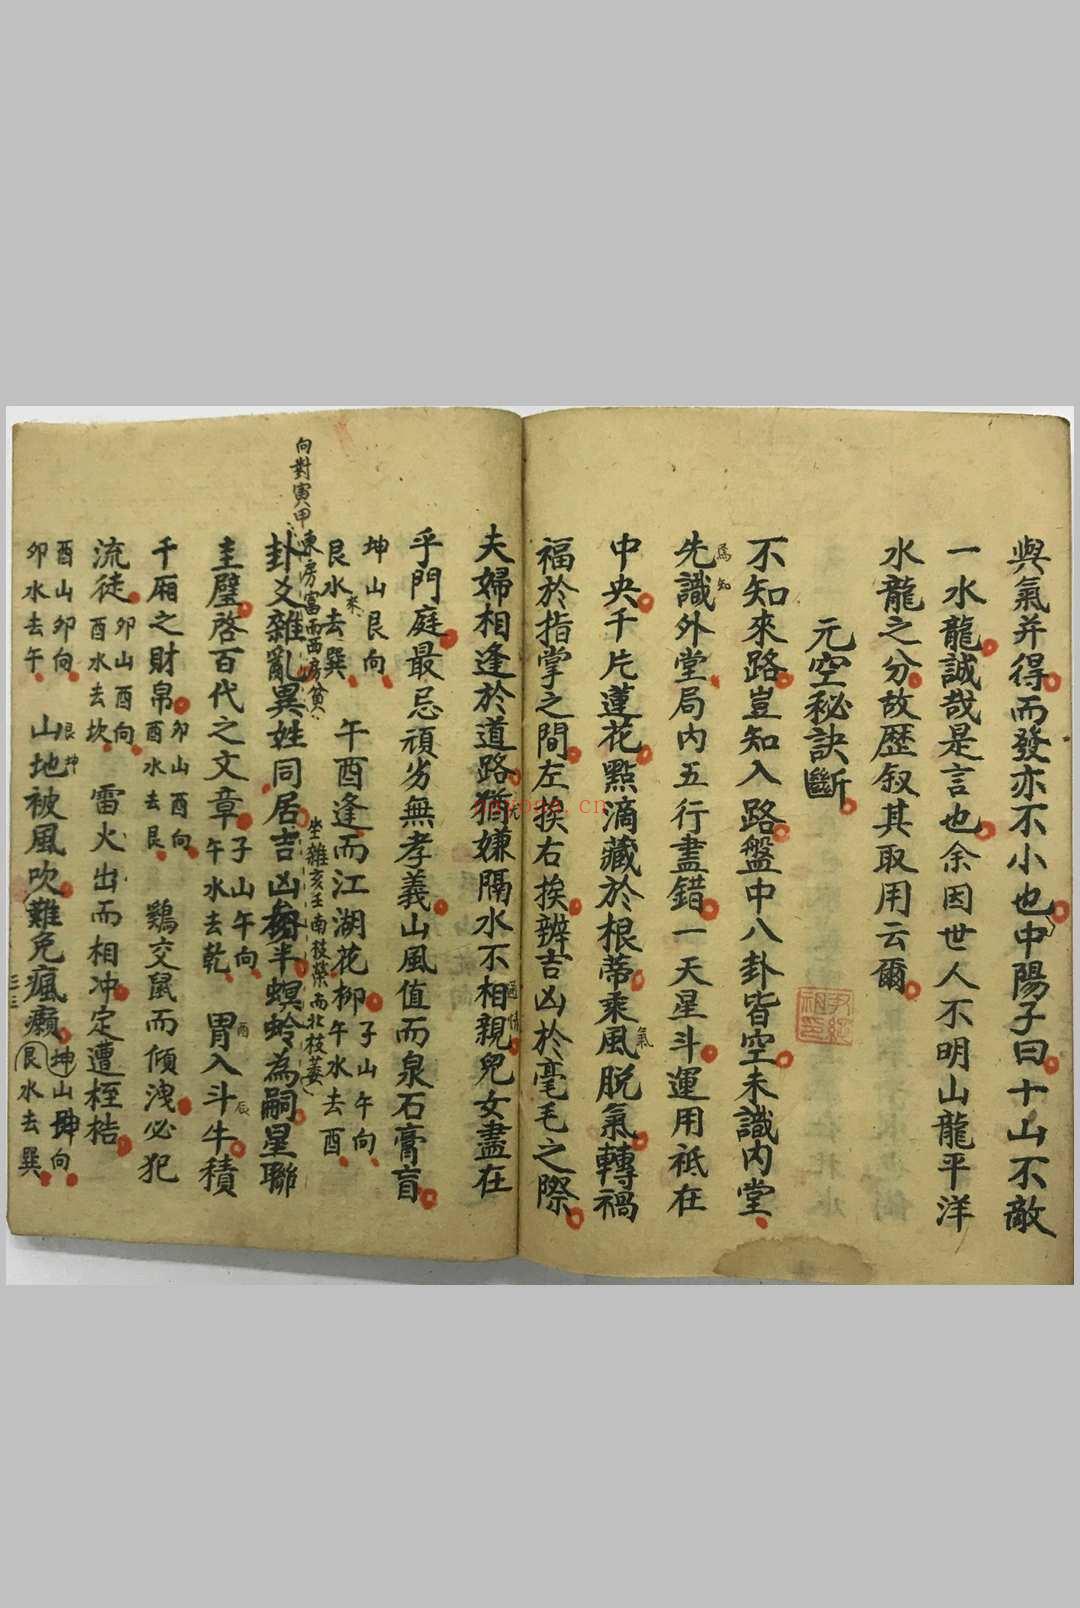 與氣并得而發亦不小也中陽子曰十山不敵
一水龍誠哉是言也余因世人不明山龍平洋
水龍之分故歷叙其取用云爾
元空秘訣斷
不知來路豈知入路盤中八卦皆空未識內堂
先識外堂局內五行盡錯一天星斗運用祗在
焉知
中央千片蓮花點滴藏於根蒂乘風脫氣轉禍
氣
福於指掌之間左挨右挨辨吉凶於毫毛之際
夫婦相逢於道路猶嫌隔水不相親兒女盡在
乎門庭最忌頑劣無孝義山風值而泉石膏肓
坤山艮向
艮水去巽
來
午酉逢而江湖花柳
子山午向
午水去酉
向對寅甲東房富西西房貧
坐雜亥壬南枝榮南北枝萎
卦爻雜亂異姓同居吉凶半螟蛉為嗣星聯
圭璧啓百代之文章
子山午向
午水去乾
胃入斗牛積
酉
辰
千廂之財帛
卯山酉向
酉水去艮
鷄交鼠而傾洩必犯
流徒
卯山酉向
酉水去坎
雷火出而相冲定遭桎梏
酉山卯向
卯水去午
山地被風吹難免瘋癲
艮坤
坤山向
艮水去巽